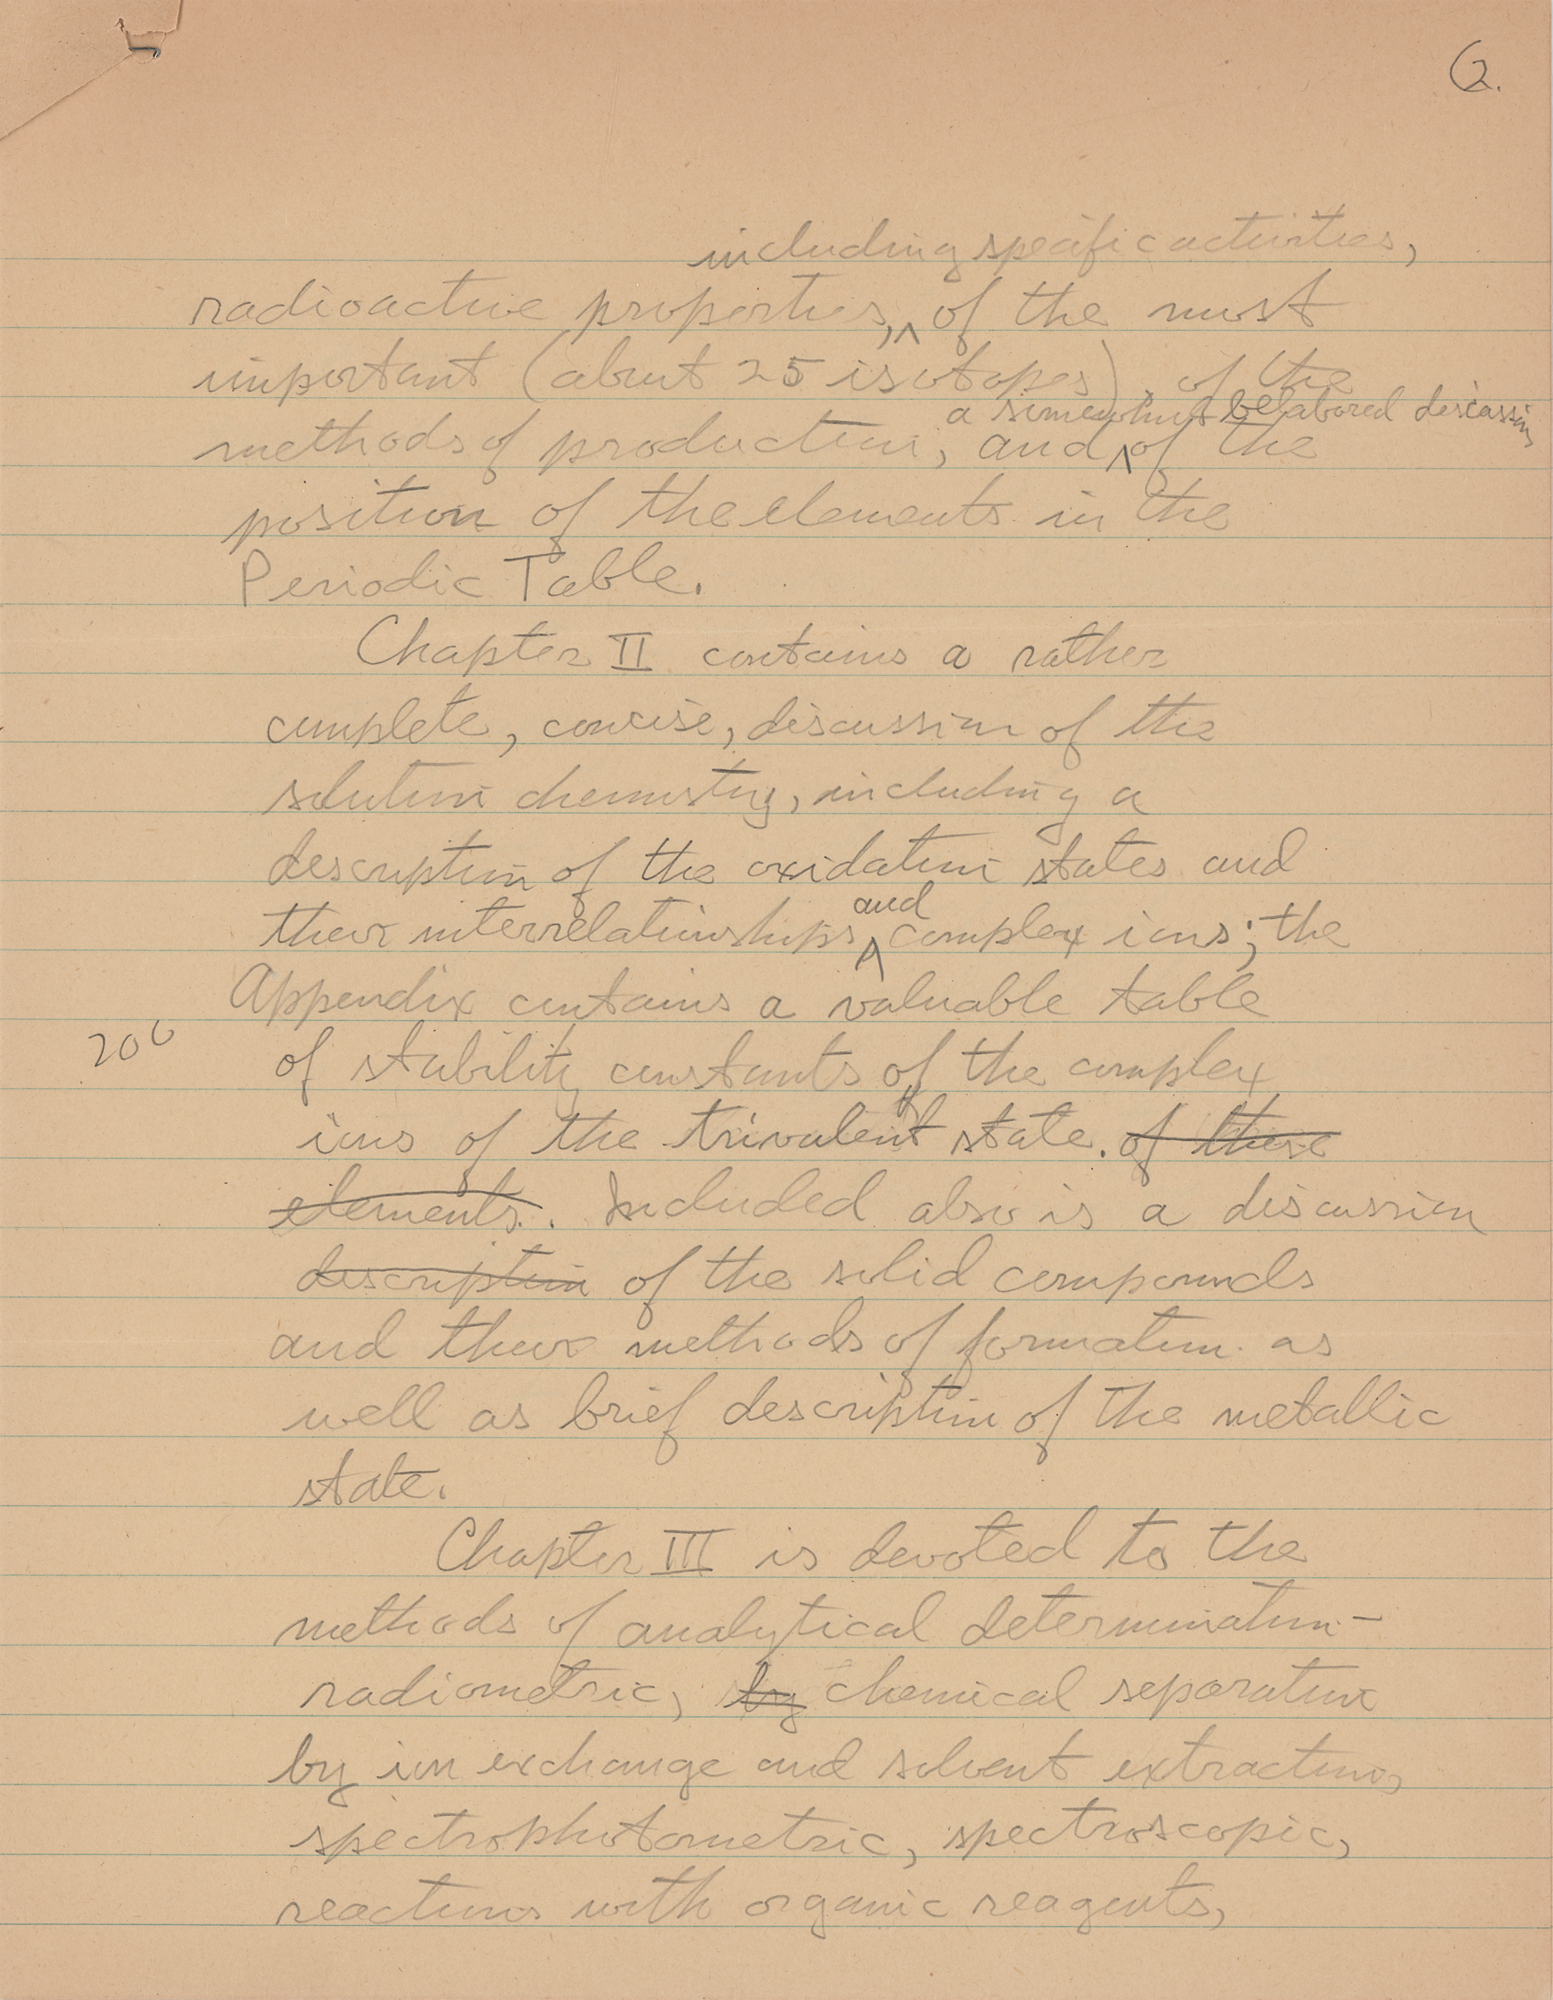 2.
including specific activities,
radioactive properties, ^ of the most
important (about 25 isotopes), of the
a somewhat belabored discussion
methods of production, and ^ of the
position of the elements in the
Periodic Table.
Chapter II contains a rather
complete, concise, discussion of the
solution chemistry, including a
description of the oxidation states and
and
their interrelationships ^ complex ions; the
Appendix contains a valuable table
200
of stability constants of the complex
ions of the trivalent state. of these
elements. Included also is a discussion
description of the solid compounds
and their methods of formation as
well as brief description of the metallic
state.
Chapter III is devoted to the
methods of analytical determination –
radiometric, by chemical separation
by ion exchange and solvent extraction,
spectrophotometric, spectroscopic,
reactions with organic reagents,